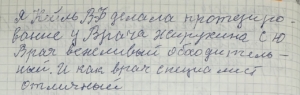 Я Кейль В.Ф делала протезиро-
вание у Врача Жирухина С.Ю
Врач вежливый обходитель-
ный. И как врач специалист
отличный